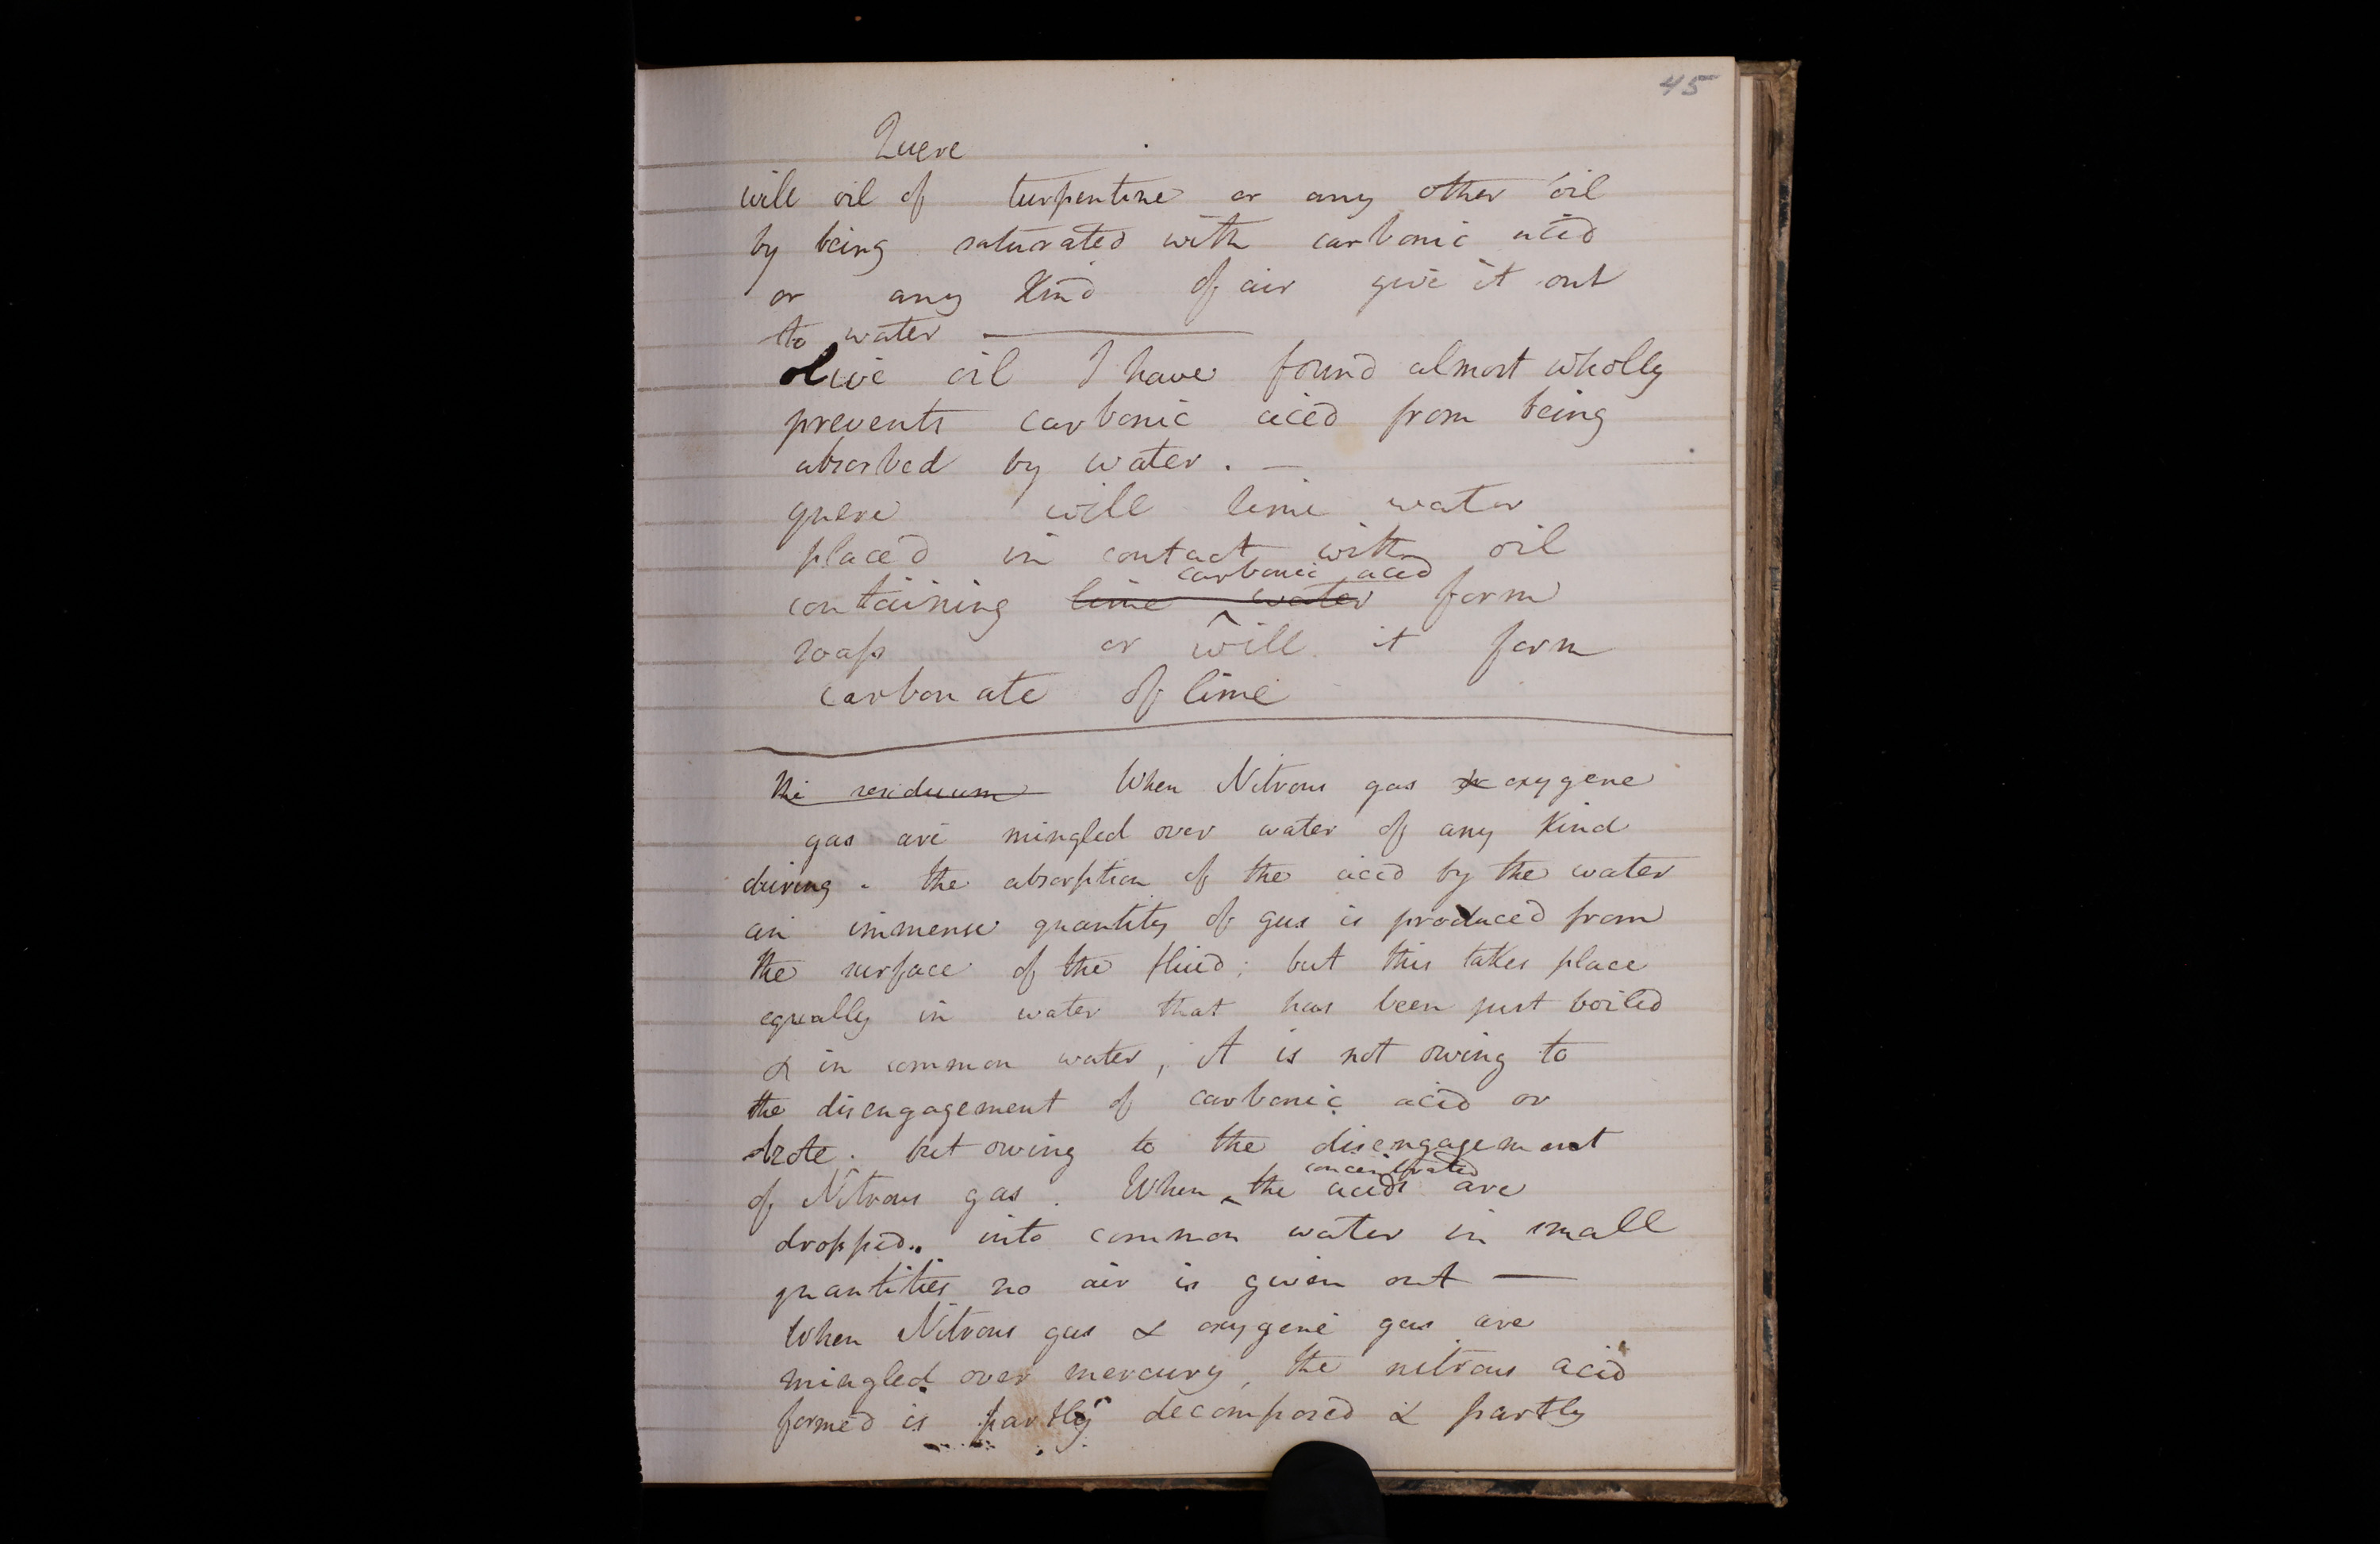 45
Quere
will oil of turpentine or any other oil
by being saturated with carbonic acid
or any Kind of air give it out
to water —
olive oil I have found almost wholly
prevents carbonic acid from being
absorbed by water. —
quere will lime water
placed in contact with oil
carbonic acid
containing lime water form
soap or will it form
carbonate of lime
the residuum When Nitrous gas & oxygene
gas are mingled over water of any Kind
during the absorption of the acid by the water
an immense quantity of gas is produced from
the surface of the fluid; but this takes place
equally in water that has been just boiled
& in common water, it is not owing to
the disengagement of carbonic acid or
Azote. but owing to the disengagement
concentrated
of Nitrous gas. When ^ the acids are
dropped into common water in small
quantities no air is given out —
When Nitrous gas & oxygene gas are
mingled over mercury, the nitrous acid
formed is partly decomposed & partly